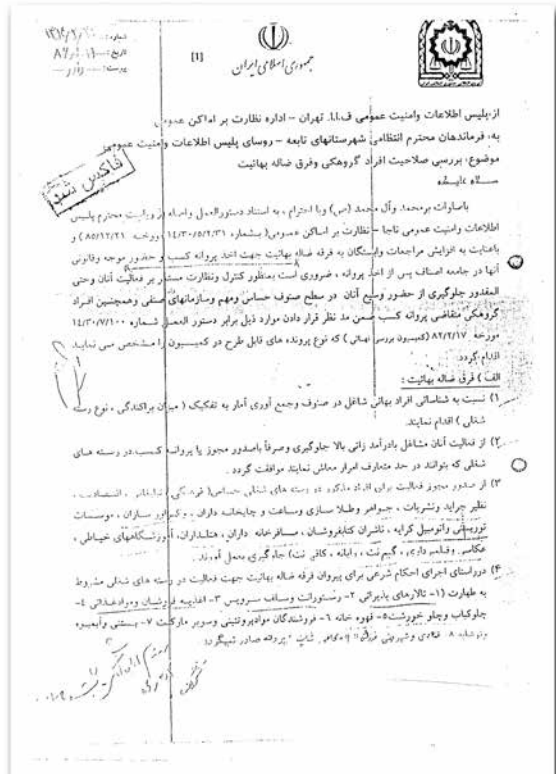 شماره:
تاریخ:
پیوست:
[1]
جمهوری اسلامی ایران
از: پلیس اطلاعات وامنیت عمومی ف.ا.ا. تهران – اداره نظارت بر اماکن عمومی
به: فرماندهان محترم انتظامی شهرستانهای تابعه – روسای پلیس اطلاعات وامنیت عمومی
موضوع: بررسی صلاحیت افراد گروهکی وفرق ضاله بهائیت
فاکس شد
سلام علیکم
باصلوات برمحمد وآل محمد (ص) وبا احترام ، به استناد دستورالعمل واصله از ریاست محترم پلیس
اطلاعات وامنیت عمومی ناجا – نظارت بر اماکن عمومی( بشماره ۱۴/۳۰/۵/۲/۳۱ مورخه ۸۵/۱۲/۲۱ ) و
باعنایت به افزایش مراجعات وابستگان به فرقه ضاله بهائیت جهت اخذ پروانه کسب و حضور موجه وقانونی
آنها در جامعه اصناف پس از اخذ پروانه ، ضروری است بمنظور کنترل ونظارت مستمر بر فعالیت آنان وحتی
المقدور جلوگیری از حضور وسیع آنان در سطح صنوف حساس ومهم وسازمانهای صنفی وهمچنین افراد
گروهکی متقاضی پروانه کسب ضمن مد نظر قرار دادن موارد ذیل برابر دستور العمل شماره ۱۴/۳۰/۷/۱۰۰
مورخه ۸۲/۲/۱۷ (کمیسیون بررسی نهائی ) که نوع پرونده های قابل طرح در کمیسیون را مشخص می نماید
اقدام گردد.
الف ) فرق ضاله بهائیت :
۱) نسبت به شناسائی افراد بهائی شاغل در صنوف وجمع آوری آمار به تفکیک ( میزان پراکندگی ، نوع رسته
شغلی ) اقدام نمایند.
۲) از فعالیت آنان مشاغل بادرآمد زائی بالا جلوگیری وصرفاً باصدور مجوز یا پروانه کسب در رسته های
شغلی که بتوانند در حد متعارف امرار معاش نمایند موافقت گردد .
۳) از صدور مجوز فعالیت برای افراد مذکور در رسته های شغلی حساس( فرهنگی ، تبلیغاتی ، اقتصادی ،
نظیر جراید ونشریات ، جواهر وطلا سازی وساعت و چاپخانه داران ، وگراور سازان ، موسسات
توریستی واتومبیل کرایه ، ناشران کتابفروشان ، مسافرخانه داران ، هتلداران، آموزشگاههای خیاطی ،
عکاسی وفیلمبرداری ، گیم نت ، رایانه ، کافی نت) جلوگیری بعمل آورند .
۴) درراستای اجرای احکام شرعی برای پیروان فرقه ضاله بهائیت جهت فعالیت در رسته های شغلی مشروط
به طهارت (۱- تالارهای پذیرائی ۲- رستورانت وسلف سرویس ۳- اغذیه فروشان ومواد غذائی ۴-
جلوکباب وچلو خورشت ۵- قهوه خانه ۶- فروشندگان موادپروتئینی وسوپر مارکت ۷- بستنی وآبمیوه
ونوشابه ۸- قنادی وشیرینی فروشی پروانه صادر نمیگردد